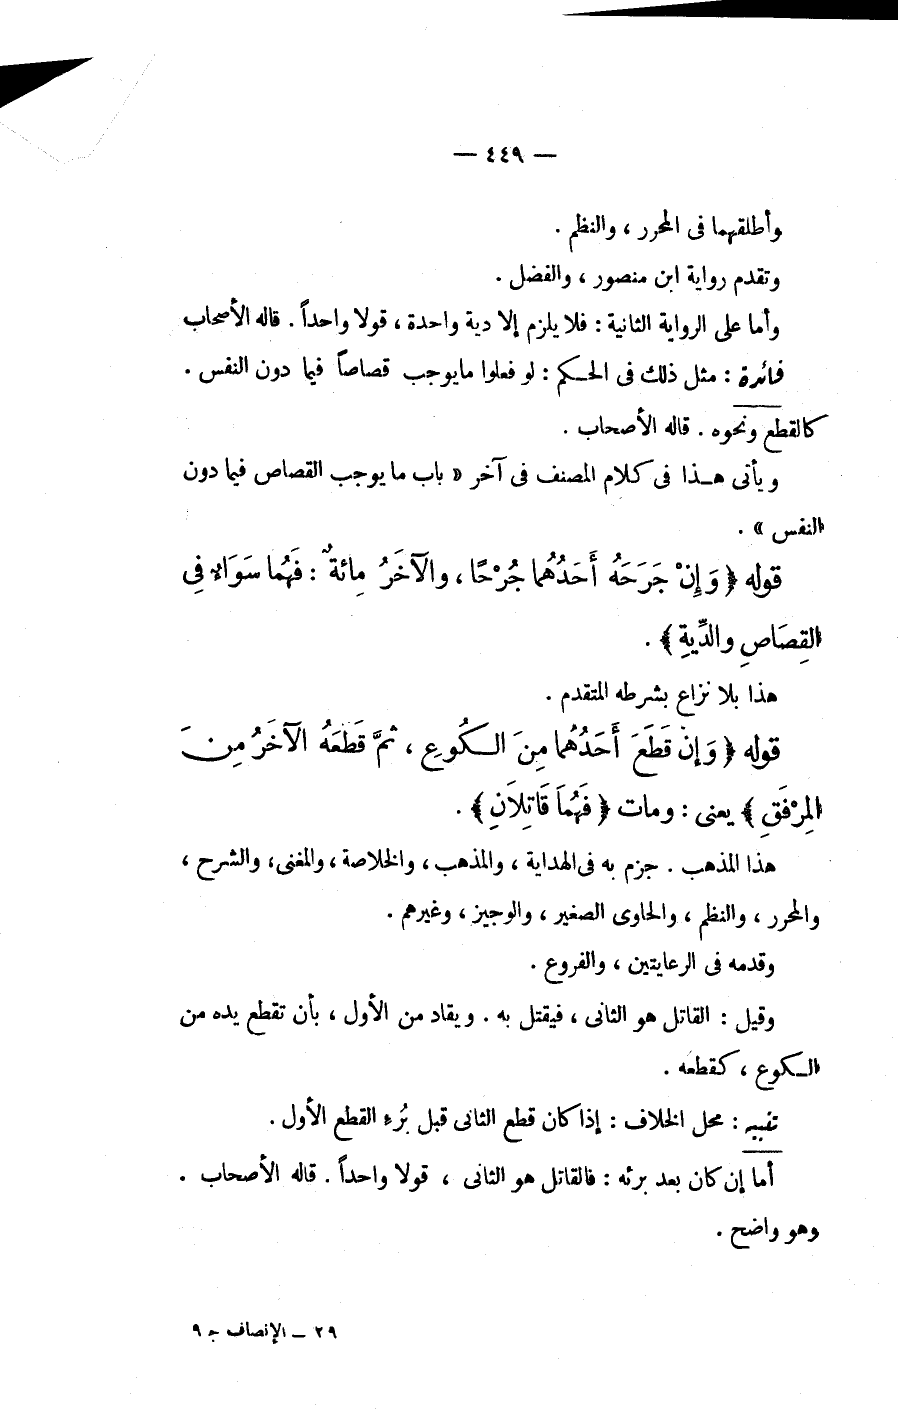 — ٤٤٩ —
وأطلقهما فى المحرر ، والنظم .
وتقدم رواية ابن منصور ، والفضل .
وأما على الرواية الثانية : فلا يلزم إلا دية واحدة ، قولا واحداً . قاله الأصحاب
فائرة : مثل ذلك فى الحكم : لو فعلوا مايوجب قصاصاً فيما دون النفس .
كالقطع ونحوه . قاله الأصحاب .
ويأتى هذا فى كلام المصنف فى آخر « باب ما يوجب القصاص فيما دون
النفس » .
قوله ﴿ وَإِنْ جَرَحَهُ أَحَدُهُما جُرْحًا ، والآخَرُ مِائةٌ : فَهُما سَوَاءٌ فِى
القِصَاصِ والدِّيةِ ﴾ .
هذا بلا نزاع بشرطه المتقدم .
قوله ﴿ وَإِنْ قَطَعَ أَحَدُهُما مِنَ الكُوعِ ، ثمَّ قَطَعَهُ الآخَرُ مِنَ
المِرْفَقِ ﴾ يعنى : ومات ﴿ فَهُمَا قَاتِلاَنِ ﴾ .
هذا المذهب . جزم به فى الهداية ، والمذهب ، والخلاصة ، والمغنى ، والشرح ،
والمحرر ، والنظم ، والحاوى الصغير ، والوجيز ، وغيرهم .
وقدمه فى الرعايتين ، والفروع .
وقيل : القاتل هو الثانى ، فيقتل به . ويقاد من الأول ، بأن تقطع يده من
الكوع ، كقطعه .
تنبيه : محل الخلاف : إذا كان قطع الثانى قبل بُرء القطع الأول .
أما إن كان بعد برئه : فالقاتل هو الثانى ، قولا واحداً . قاله الأصحاب .
وهو واضح .
٢٩ — الإنصاف ج ٩